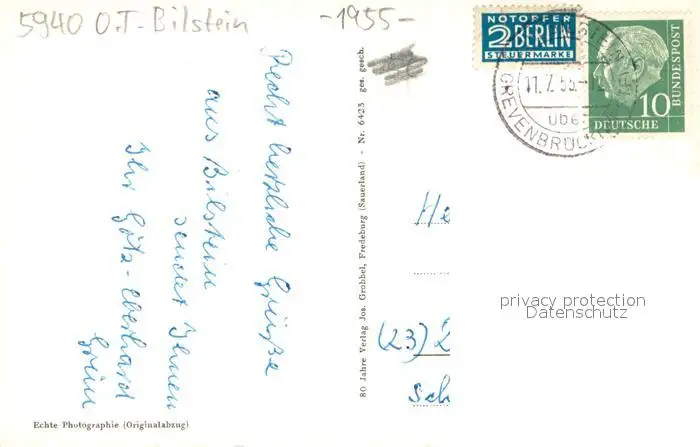 5940 O.T. Bilstein
-1955-
NOTOPFER
2 BERLIN
STEUERMARKE
DEUTSCHE BUNDESPOST
10
11.7.55
ÜBER
GREVENBRÜCK
Recht herzliche Grüße
aus Bilstein
sendet Ihnen
Ihr Götz-Eberhard
Grün
80 Jahre Verlag Jos. Grobbel, Fredeburg (Sauerland) - Nr. 6423 ges. gesch.
He
(23)
Sch
privacy protection
Datenschutz
Echte Photographie (Originalabzug)